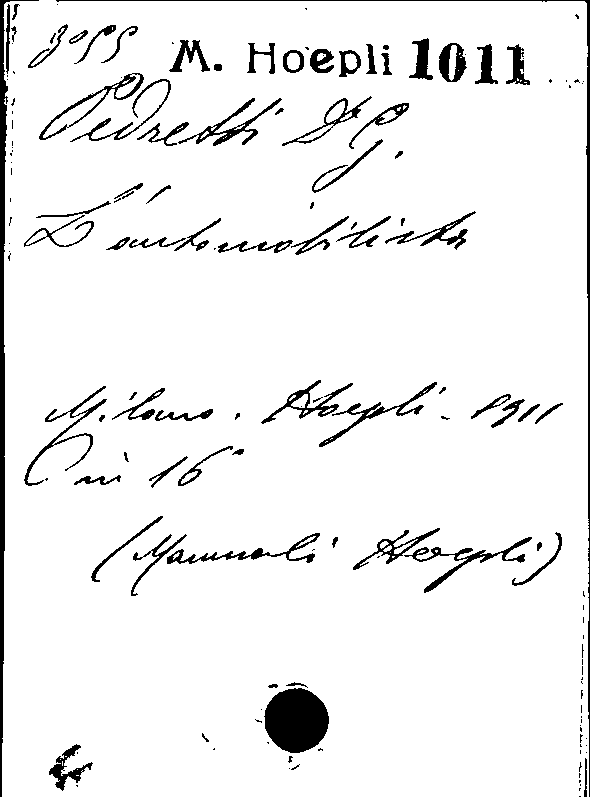 3055 M. Hoepli 1011
Pedretti Dr G.
L'automobilista
Milano. Hoepli - 1911
in 16°
(Manuali Hoepli)